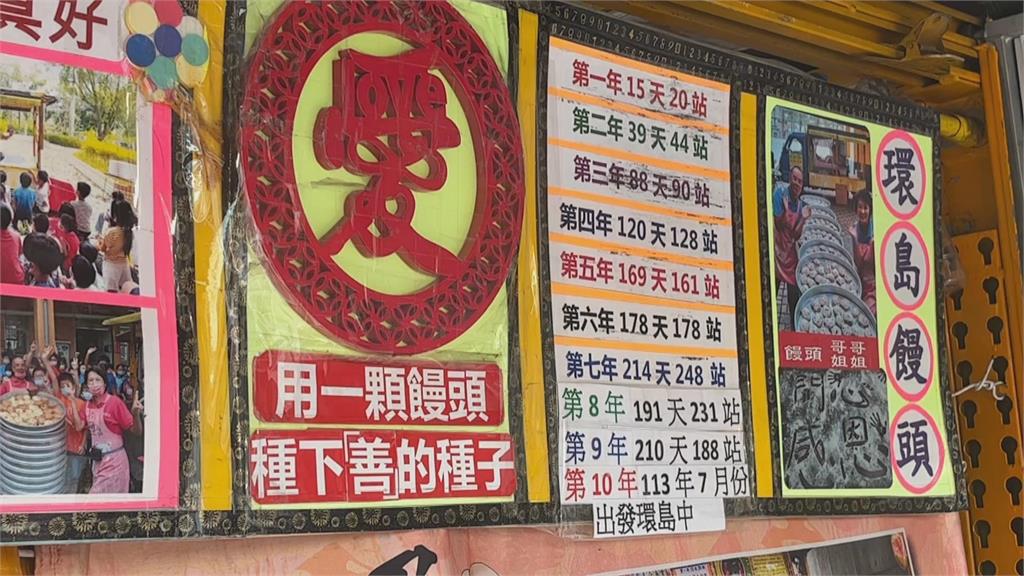 真好
love
愛
用一顆饅頭
種下「善」的種子
第一年15天20站
第二年39天44站
第三年88天90站
第四年120天128站
第五年169天161站
第六年178天178站
第七年214天248站
第8年 191天231站
第9年 210天188站
第10年113年7月份
出發環島中
環島饅頭
饅頭 哥哥
姐姐
感恩